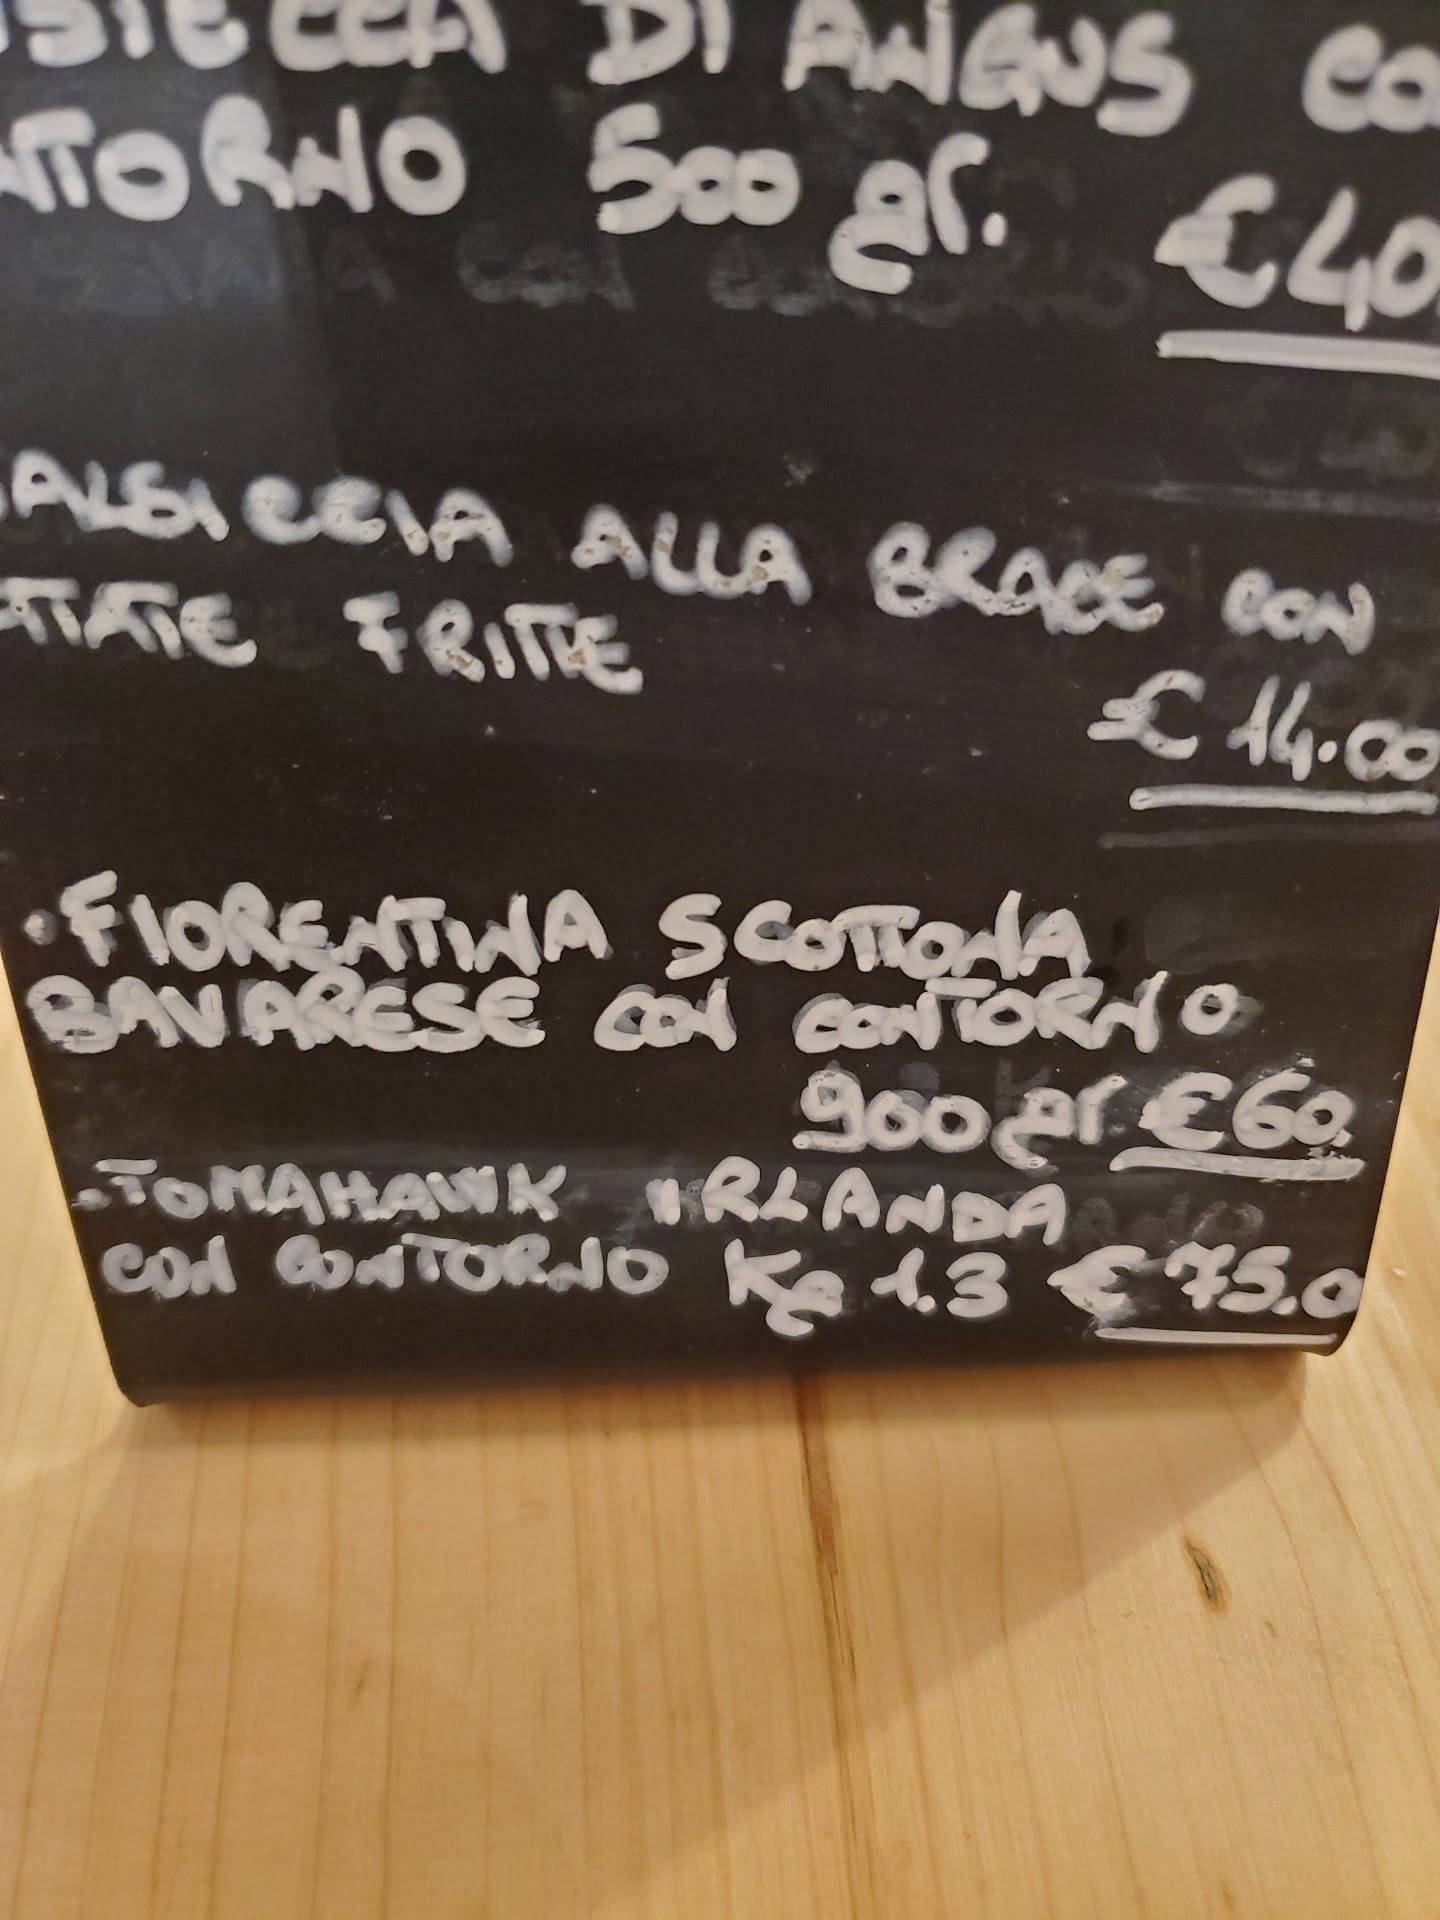 SIECCA DI ANGUS CO
NTORNO 500 gr. €40.
SALSICCIA ALLA BRACE CON
ATATE FRITTE
€ 14.00
• FIORENTINA SCOTTONA
BAVARESE CON CONTORNO
900 gr. €60.
• TOMAHAWK IRLANDA
CON CONTORNO Kg 1.3 € 75.0